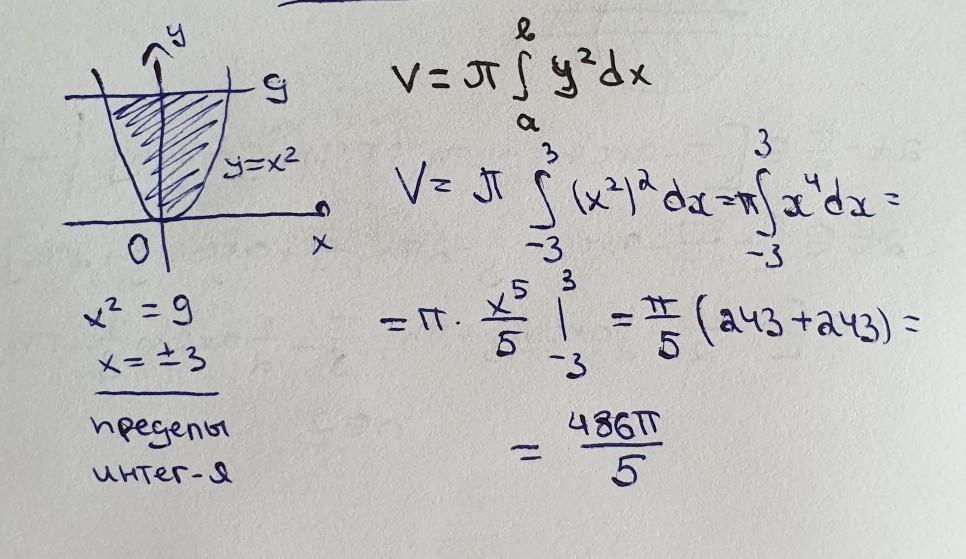 y
9
y=x²
0
x
x² = 9
x = ±3
пределы
интег-я
V = π ∫ₐᵇ y² dx
V = π ∫₋₃³ (x²)² dx = π ∫₋₃³ x⁴ dx =
= π · x⁵/5 |₋₃³ = π/5 (243 + 243) =
= 486π/5